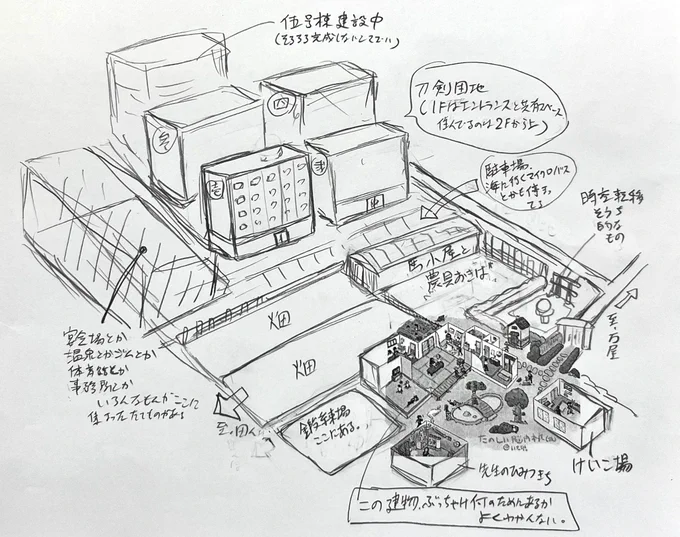 伍号棟建設中
(そろそろ完成しないとしてい)
刀剣団地
(1Fはエントランスと共有スペース
住んでるのは2Fから上)
四
参
壱
弐
駐車場、
海に行くマイクロバス
とかも停まっ
てる
時空転移
そうち
的な
もの
馬小屋と
農具おきば
至・万屋
畑
畑
宴会場とか
温泉とかジムとか
体育館とか
事務所とか
いろんなもんがここに
集まったたてものがある
至・田んぼ
鍛錬場
ここにある。
けいこ場
先生のひみつきち
この建物、ぶっちゃけ何のためにあるか
よくわかんない。